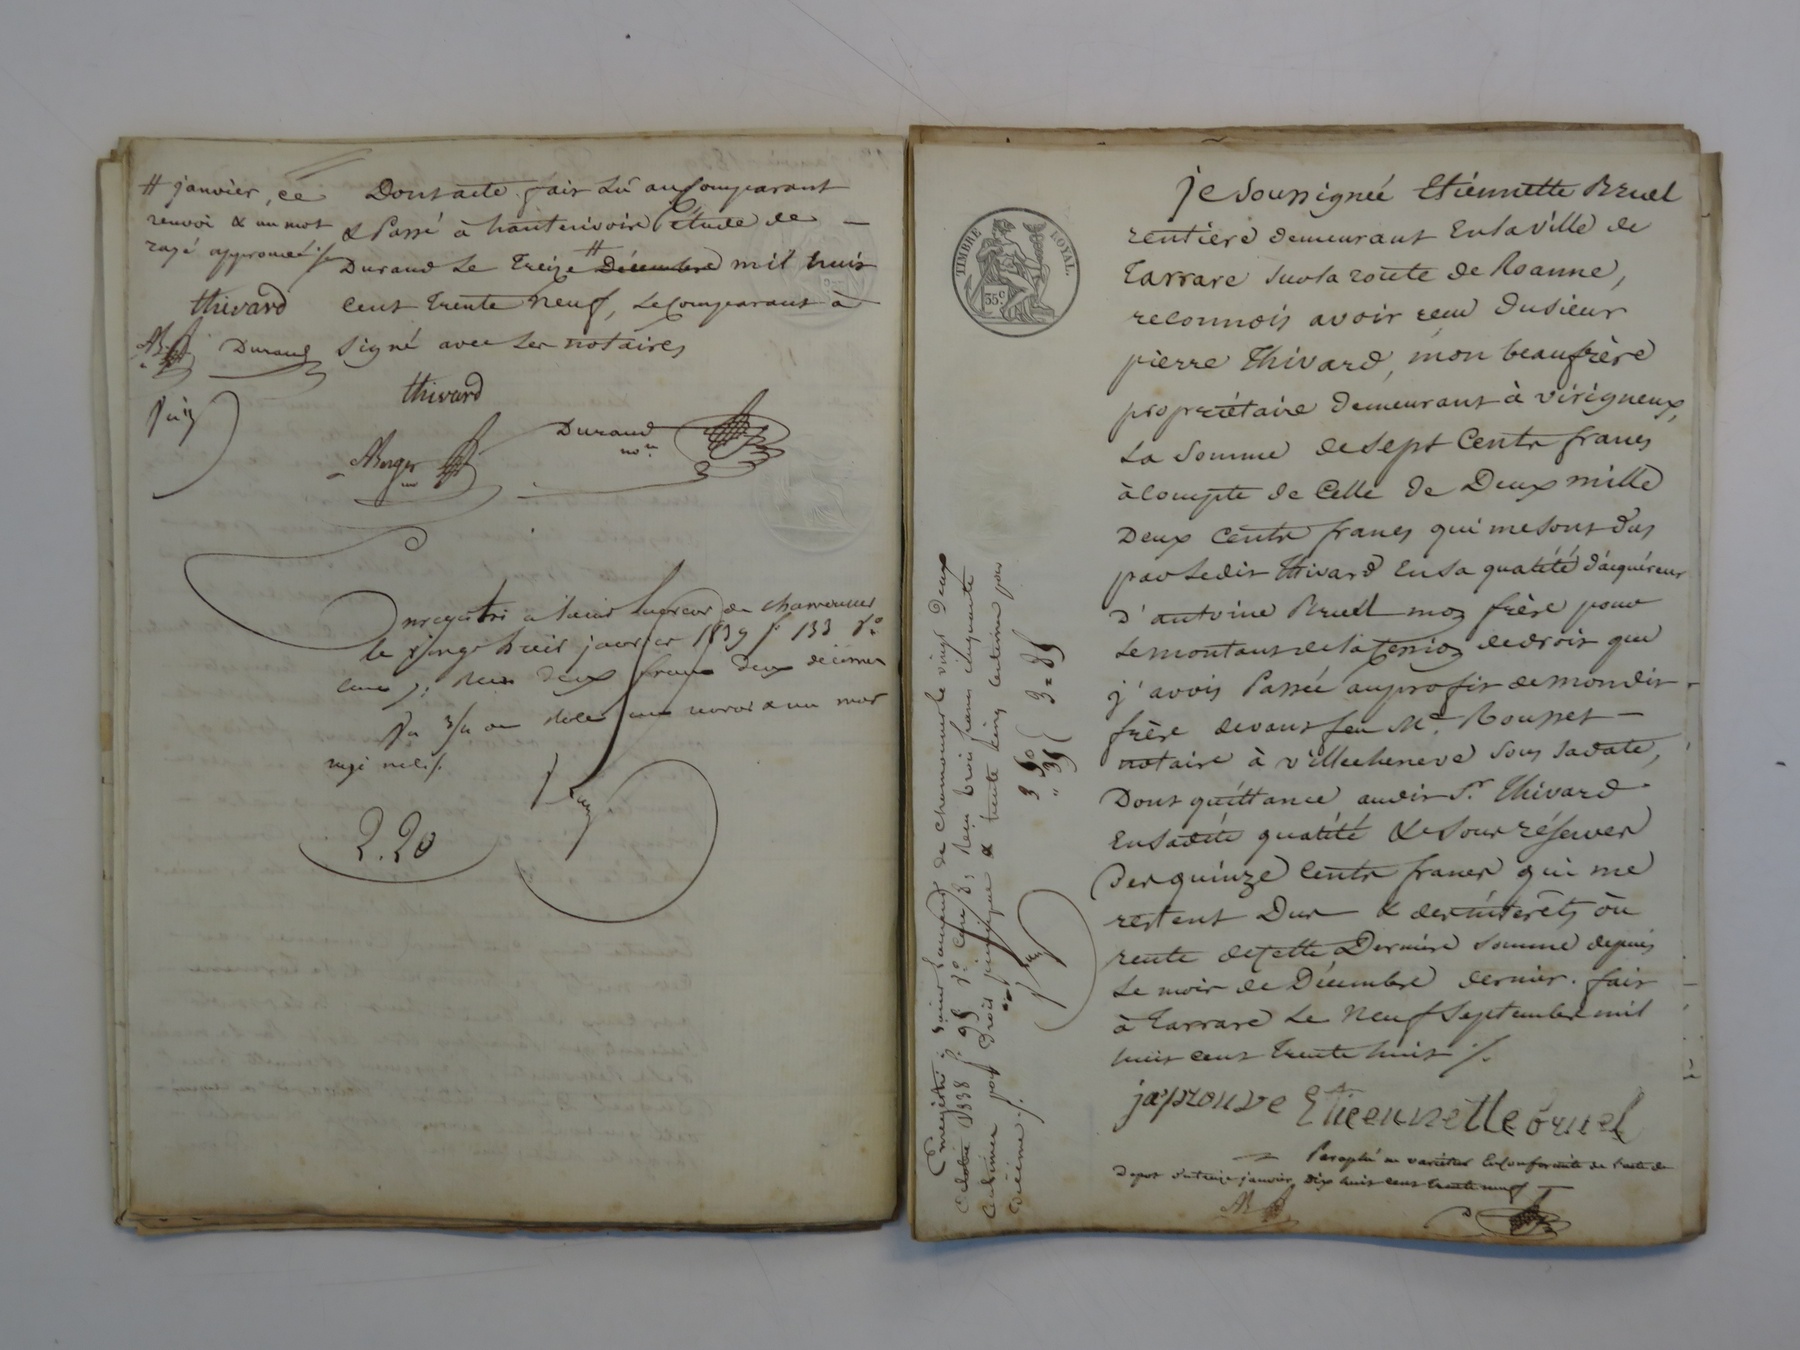 # janvier, ce
renvoi & un mot
rayé approuvés
thivard
AB Durand
Dont acte fait Lû au Comparant
& Passé à hauterivoire l'étude de
Durand Le treize # Décembre mil huit
cent trente neuf, Le Comparant à
signé avec Les notaires
thivard
ABerger
Durand
nore
Enregistré à Saint Laurent de chamousset
le vingt trois janvier 1839 fo 133 Vo
case 7. Reçu deux francs deux décimes
renvoi & un mot
rayé nul
2.20
TIMBRE ROYAL.
35c
Enregistré à Saint Laurent de Chamousset le vingt deux
octobre 1838 fo 98 Vo Case 8, Reçu trois francs cinquante
centimes pour droit principal & trente cinq centimes pour
décime
3 50
" 35
3 = 85
je soussignée Etiennette Bruel
rentière demeurant En la Ville de
Tarrare Sur la route de Roanne,
reconnois avoir reçu du sieur
pierre Thivard, mon beaufrère
propriétaire demeurant à Virigneux,
La Somme de Sept Cents francs
à Compte de Celle de Deux mille
Deux Cents francs qui me sont dus
par Ledit Thivard En sa qualité d'acquéreur
d'antoine Bruel mon frère pour
Le montant de la Cession de droit que
j'avois Passée au profit de mon dit
frère devant feu Me. Rousset
notaire à Villecheneve Sous Sa date,
Dont quittance audit Sr. Thivard
En sadite qualité & Sous réserver
Des quinze Cents francs qui me
restent Dus & des intérêts ou
rente de Cette Dernière somme depuis
Le mois de Décembre dernier. fait
à Tarrare Le Neuf Septembre mil
huit cent trente huit ./.
japrouve Etieennette bruel
Paraphé ne varietur En Conformité de l'acte de
Depot du treize janvier, Dix huit cent trente neuf
AB